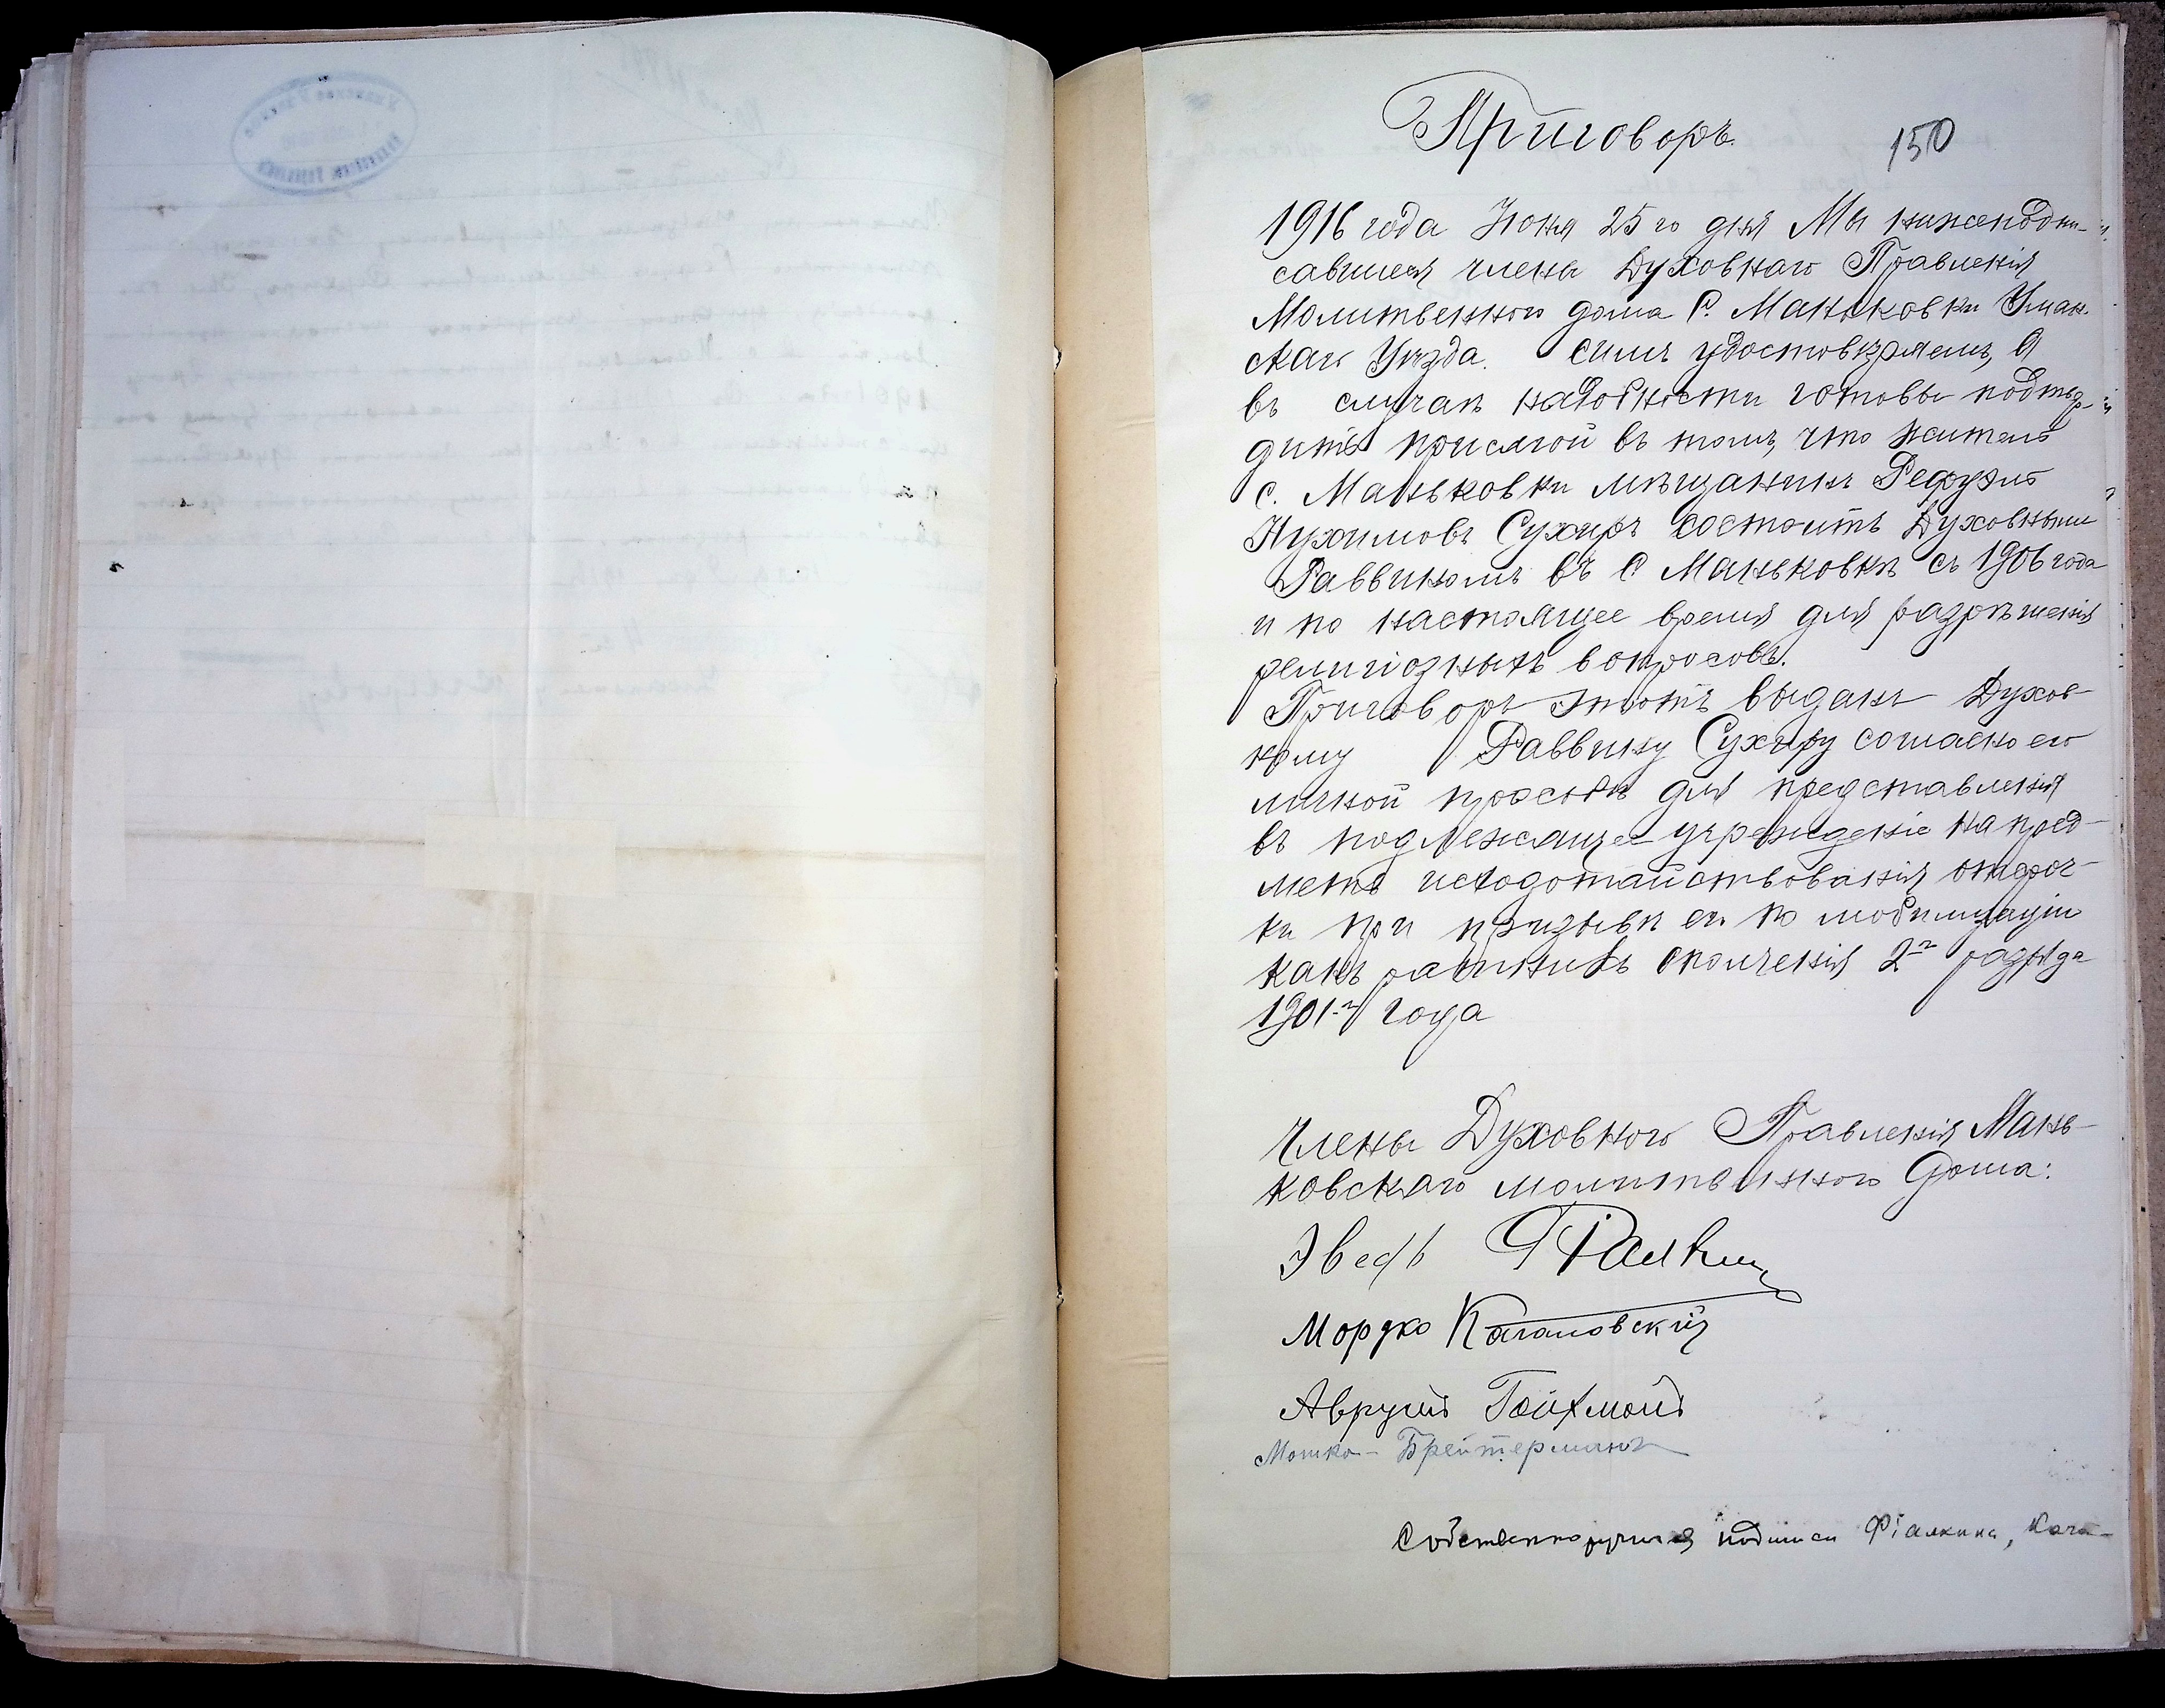 Приговоръ.
150
1916 года Іюня 25 го дня Мы нижеподпи-
савшіеся члены Духовнаго Правленія
Молитвеннаго дома С. Маньковки Уман.
скаго Уѣзда. симъ удостовѣряемъ, а
въ случаѣ надобности готовы подтвер-
дить присягой въ томъ, что житель
с. Маньковки мѣщанинъ Рефулъ
Нухимовъ Сухеръ состоитъ Духовнымъ
Раввиномъ въ С Маньковкѣ съ 1906 года
и по настоящее время для разрѣшенія
религіозныхъ вопросовъ.
Приговоръ этотъ выданъ Духов-
ному Раввину Сухеру согласно его
личной просьбѣ для представленія
въ подлежащее учрежденіе на пред-
метъ исходотайствованія отсроч-
ки при призывѣ его по мобилизаціи
какъ ратникъ ополченія 2го разряда
1901-го года
Члены Духовного Правленія Мань-
ковскаго молитвенного дома:
Фіалкин
Мордко Кагановский
Аврум Гойхман
Мошко - Брейтерманъ
Собственноручныя подписи Фіалкина, Кага-